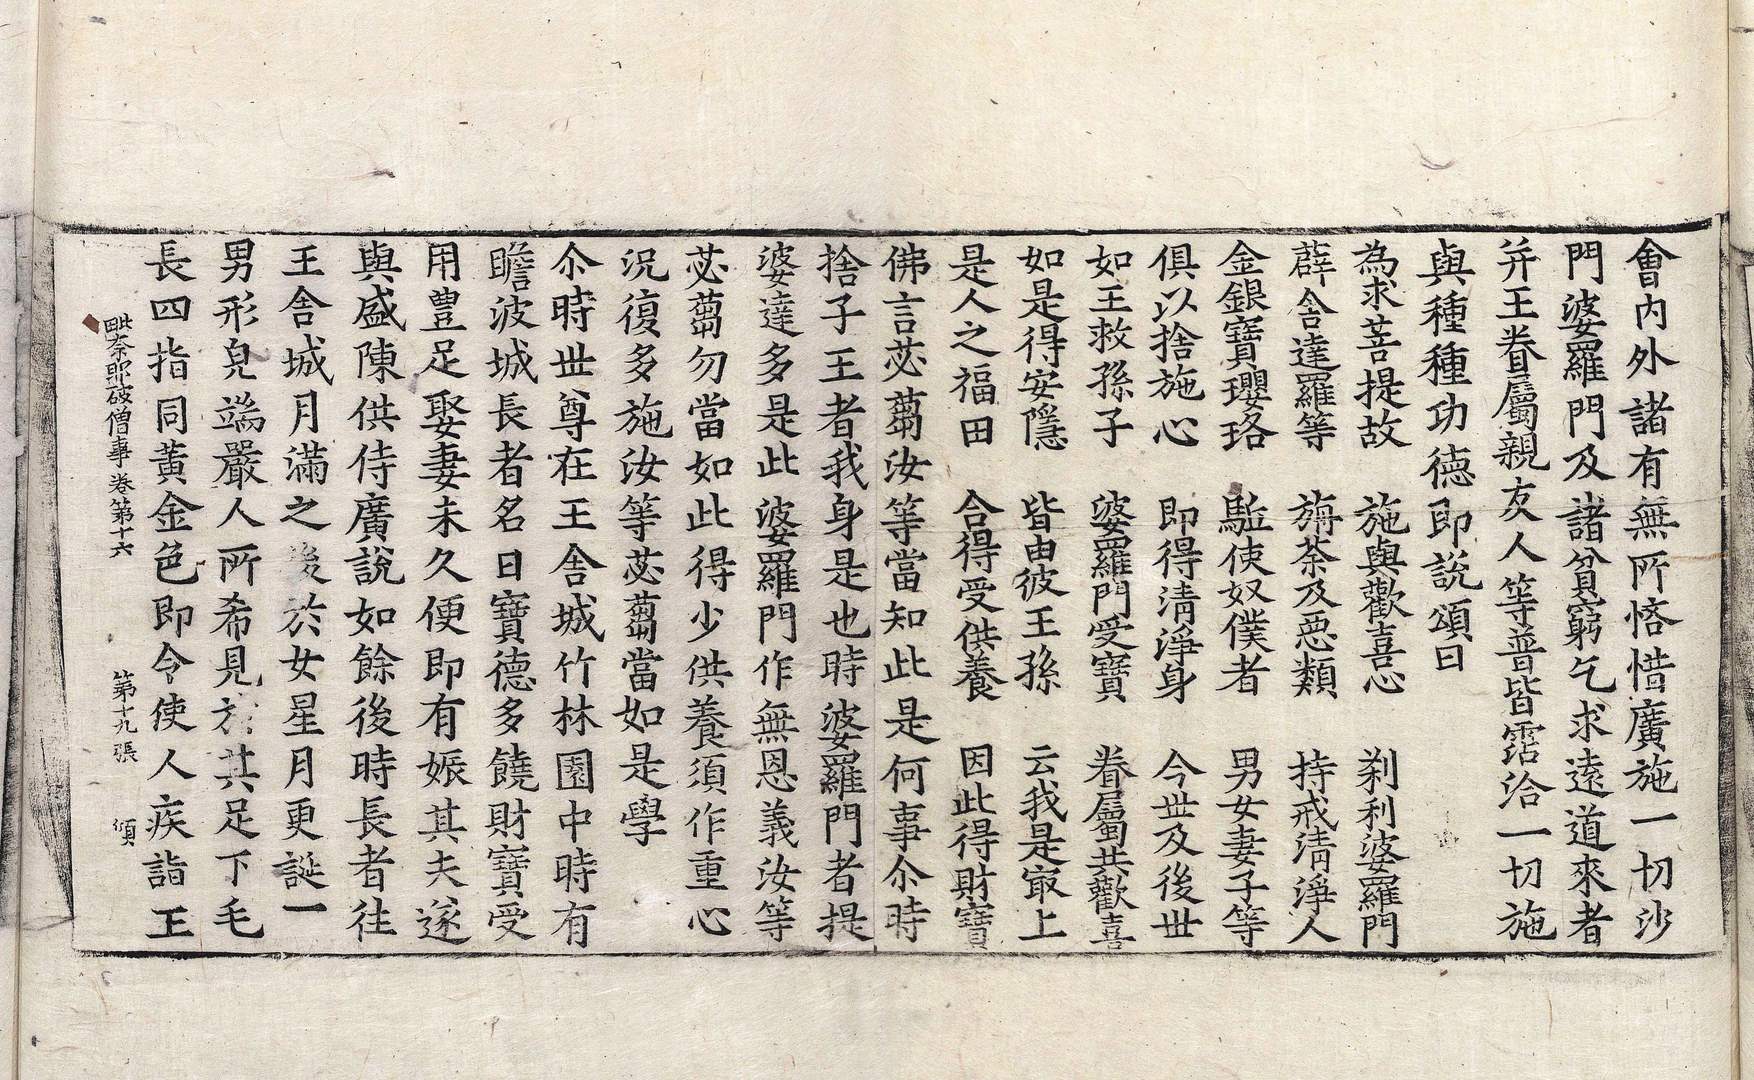 會内外諸有無所悋惜廣施一切沙
門婆羅門及諸貧窮乞求遠道來者
并王眷屬親友人等普皆霑洽一切施
與種種功德即說頌曰
為求菩提故　施與歡喜心　刹利婆羅門
薜舍達羅等　旃荼及惡類　持戒清淨人
金銀寶瓔珞　駈使奴僕者　男女妻子等
俱以捨施心　即得清淨身　今世及後世
如王救孫子　婆羅門受寶　眷屬共歡喜
如是得安隱　皆由彼王孫　云我是冣上
是人之福田　合得受供養　因此得財寶
佛言苾蒭汝等當知此是何事尒時
捨子王者我身是也時婆羅門者提
婆達多是此婆羅門作無恩義汝等
苾蒭勿當如此得少供養須作重心
況復多施汝等苾蒭當如是學
尒時世尊在王舎城竹林園中時有
瞻波城長者名曰寶德多饒財寶受
用豊足娶妻未久便即有娠其夫遂
與盛陳供侍廣說如餘後時長者往
王舎城月滿之後於女星月更誕一
男形皃端嚴人所希見於其足下毛
長四指同黃金色即令使人疾詣王
毗奈耶破僧事 卷第十六　第十九張　頌